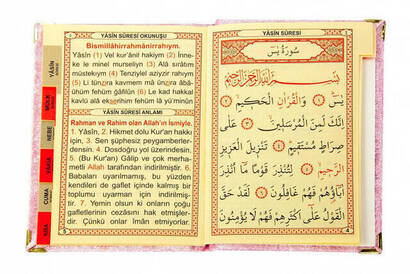 YÂSİN SÛRESİ OKUNUŞU
Bismillâhirrahmânirrahıym.
Yâsîn (1) Vel kur'ânil hakiym (2) İnne-
ke le minel murseliyn (3) Alâ sırâtım
müstekıym (4) Tenziylel aziyzir rahıym
(5) Li tünzira kavmem mâ ünzira âbâ-
ühüm fehüm ğâfilûn (6) Le kad hakkal
kavlü alâ ekserihim fehüm lâ yü'minûn
YÂSİN SÛRESİ ANLAMI
Rahman ve Rahim olan Allah'ın İsmiyle.
1. Yâsîn, 2. Hikmet dolu Kur'an hakkı
için, 3. Sen şüphesiz peygamberler-
densin. 4. Dosdoğru yol üzerindesin.
5. (Bu Kur'an) Gâlip ve çok merha-
metli Allah tarafından indirilmiştir. 6.
Babaları uyarılmamış, bu yüzden
kendileri de gaflet içinde kalmış bir
toplumu uyarman için indirilmiş-
tir. 7. Yemin olsun ki onların çoğu
gafletlerinin cezâsını hak etmişler-
dir. Çünkü onlar îmân etmiyorlar.
YÂSİN
MÜLK
NEBE
VAKIA
CUMA
YÂSİN SÛRESİ
سُورَةُ يٰسٓ
بِسْمِ اللّٰهِ الرَّحْمٰنِ الرَّحِيمِ
يٰسٓ ﴿١﴾ وَالْقُرْاٰنِ الْحَكِيمِ ﴿٢﴾
اِنَّكَ لَمِنَ الْمُرْسَلِينَ ﴿٣﴾ عَلٰى
صِرَاطٍ مُسْتَقِيمٍ ﴿٤﴾ تَنْزِيلَ الْعَزِيزِ
الرَّحِيمِ ﴿٥﴾ لِتُنْذِرَ قَوْمًا مَٓا اُنْذِرَ
اٰبَٓاؤُهُمْ فَهُمْ غَافِلُونَ ﴿٦﴾ لَقَدْ حَقَّ
الْقَوْلُ عَلٰٓى اَكْثَرِهِمْ فَهُمْ لَا يُؤْمِنُونَ
4